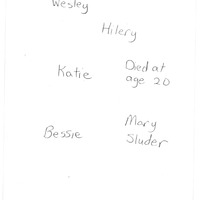 Wesley
Hilery
Katie Died at
age 20
Bessie Mary
Sluder